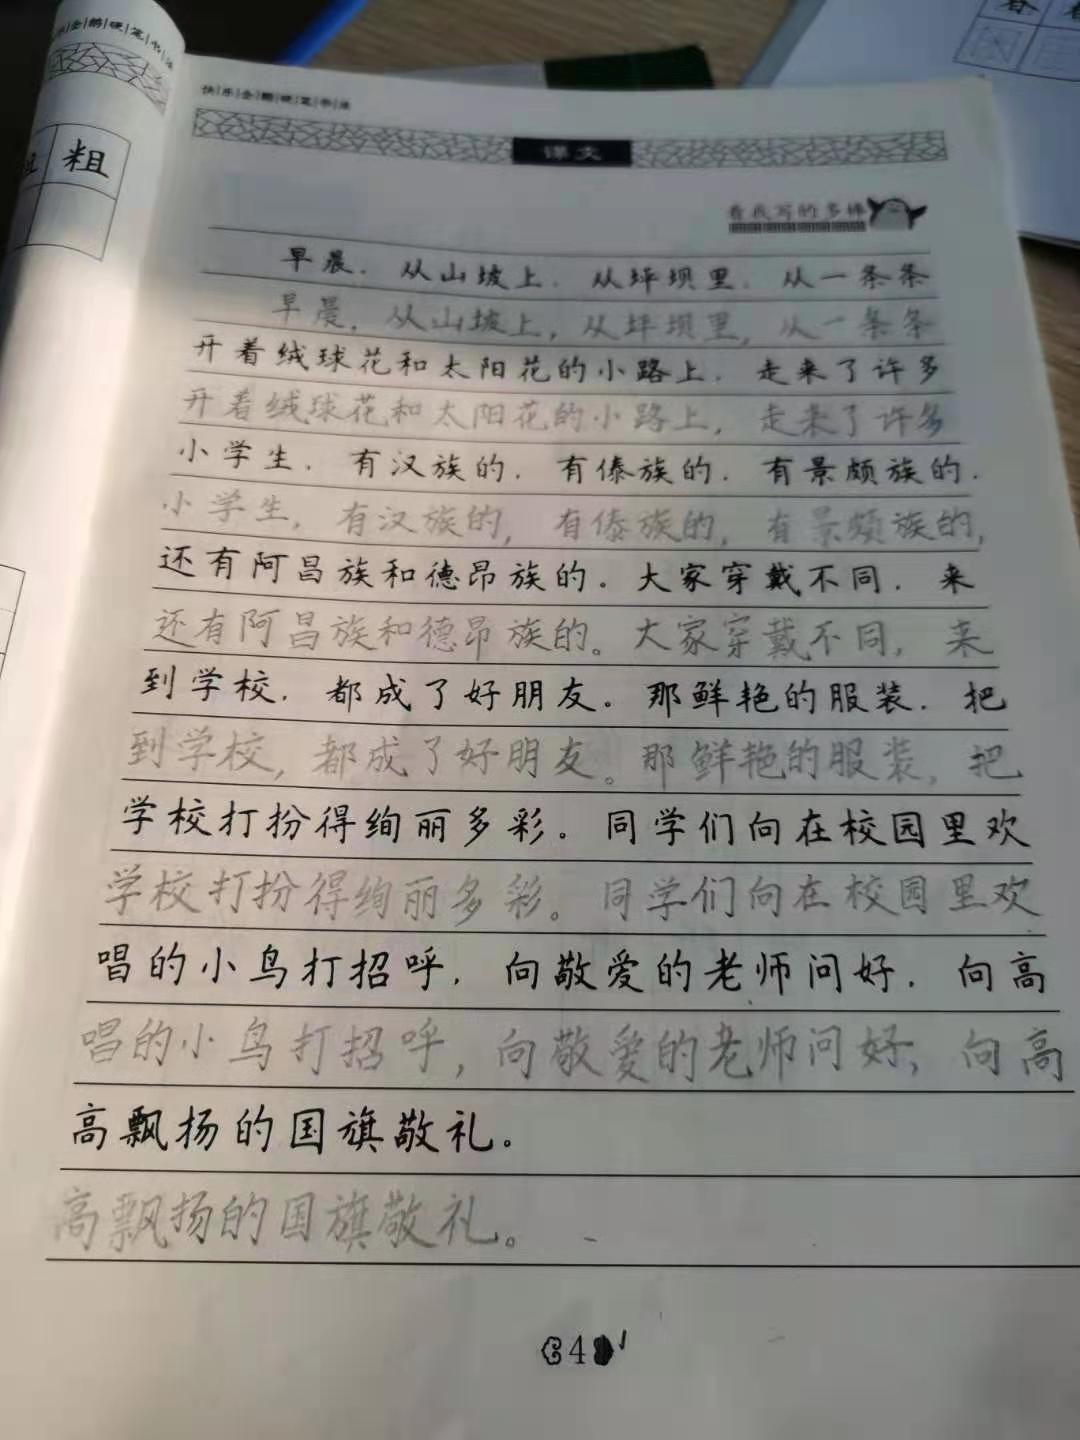 快乐企鹅硬笔书法
课文
看我写的多棒
粗
早晨，从山坡上，从坪坝里，从一条条
早晨，从山坡上，从坪坝里，从一条条
开着绒球花和太阳花的小路上，走来了许多
开着绒球花和太阳花的小路上，走来了许多
小学生，有汉族的，有傣族的，有景颇族的，
小学生，有汉族的，有傣族的，有景颇族的，
还有阿昌族和德昂族的。大家穿戴不同，来
还有阿昌族和德昂族的。大家穿戴不同，来
到学校，都成了好朋友。那鲜艳的服装，把
到学校，都成了好朋友。那鲜艳的服装，把
学校打扮得绚丽多彩。同学们向在校园里欢
学校打扮得绚丽多彩。同学们向在校园里欢
唱的小鸟打招呼，向敬爱的老师问好，向高
唱的小鸟打招呼，向敬爱的老师问好，向高
高飘扬的国旗敬礼。
高飘扬的国旗敬礼。
4